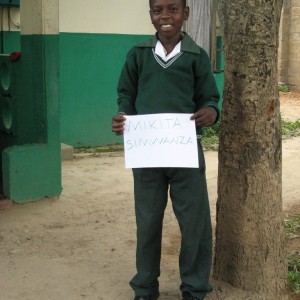 MIKITA
SIMWANZA